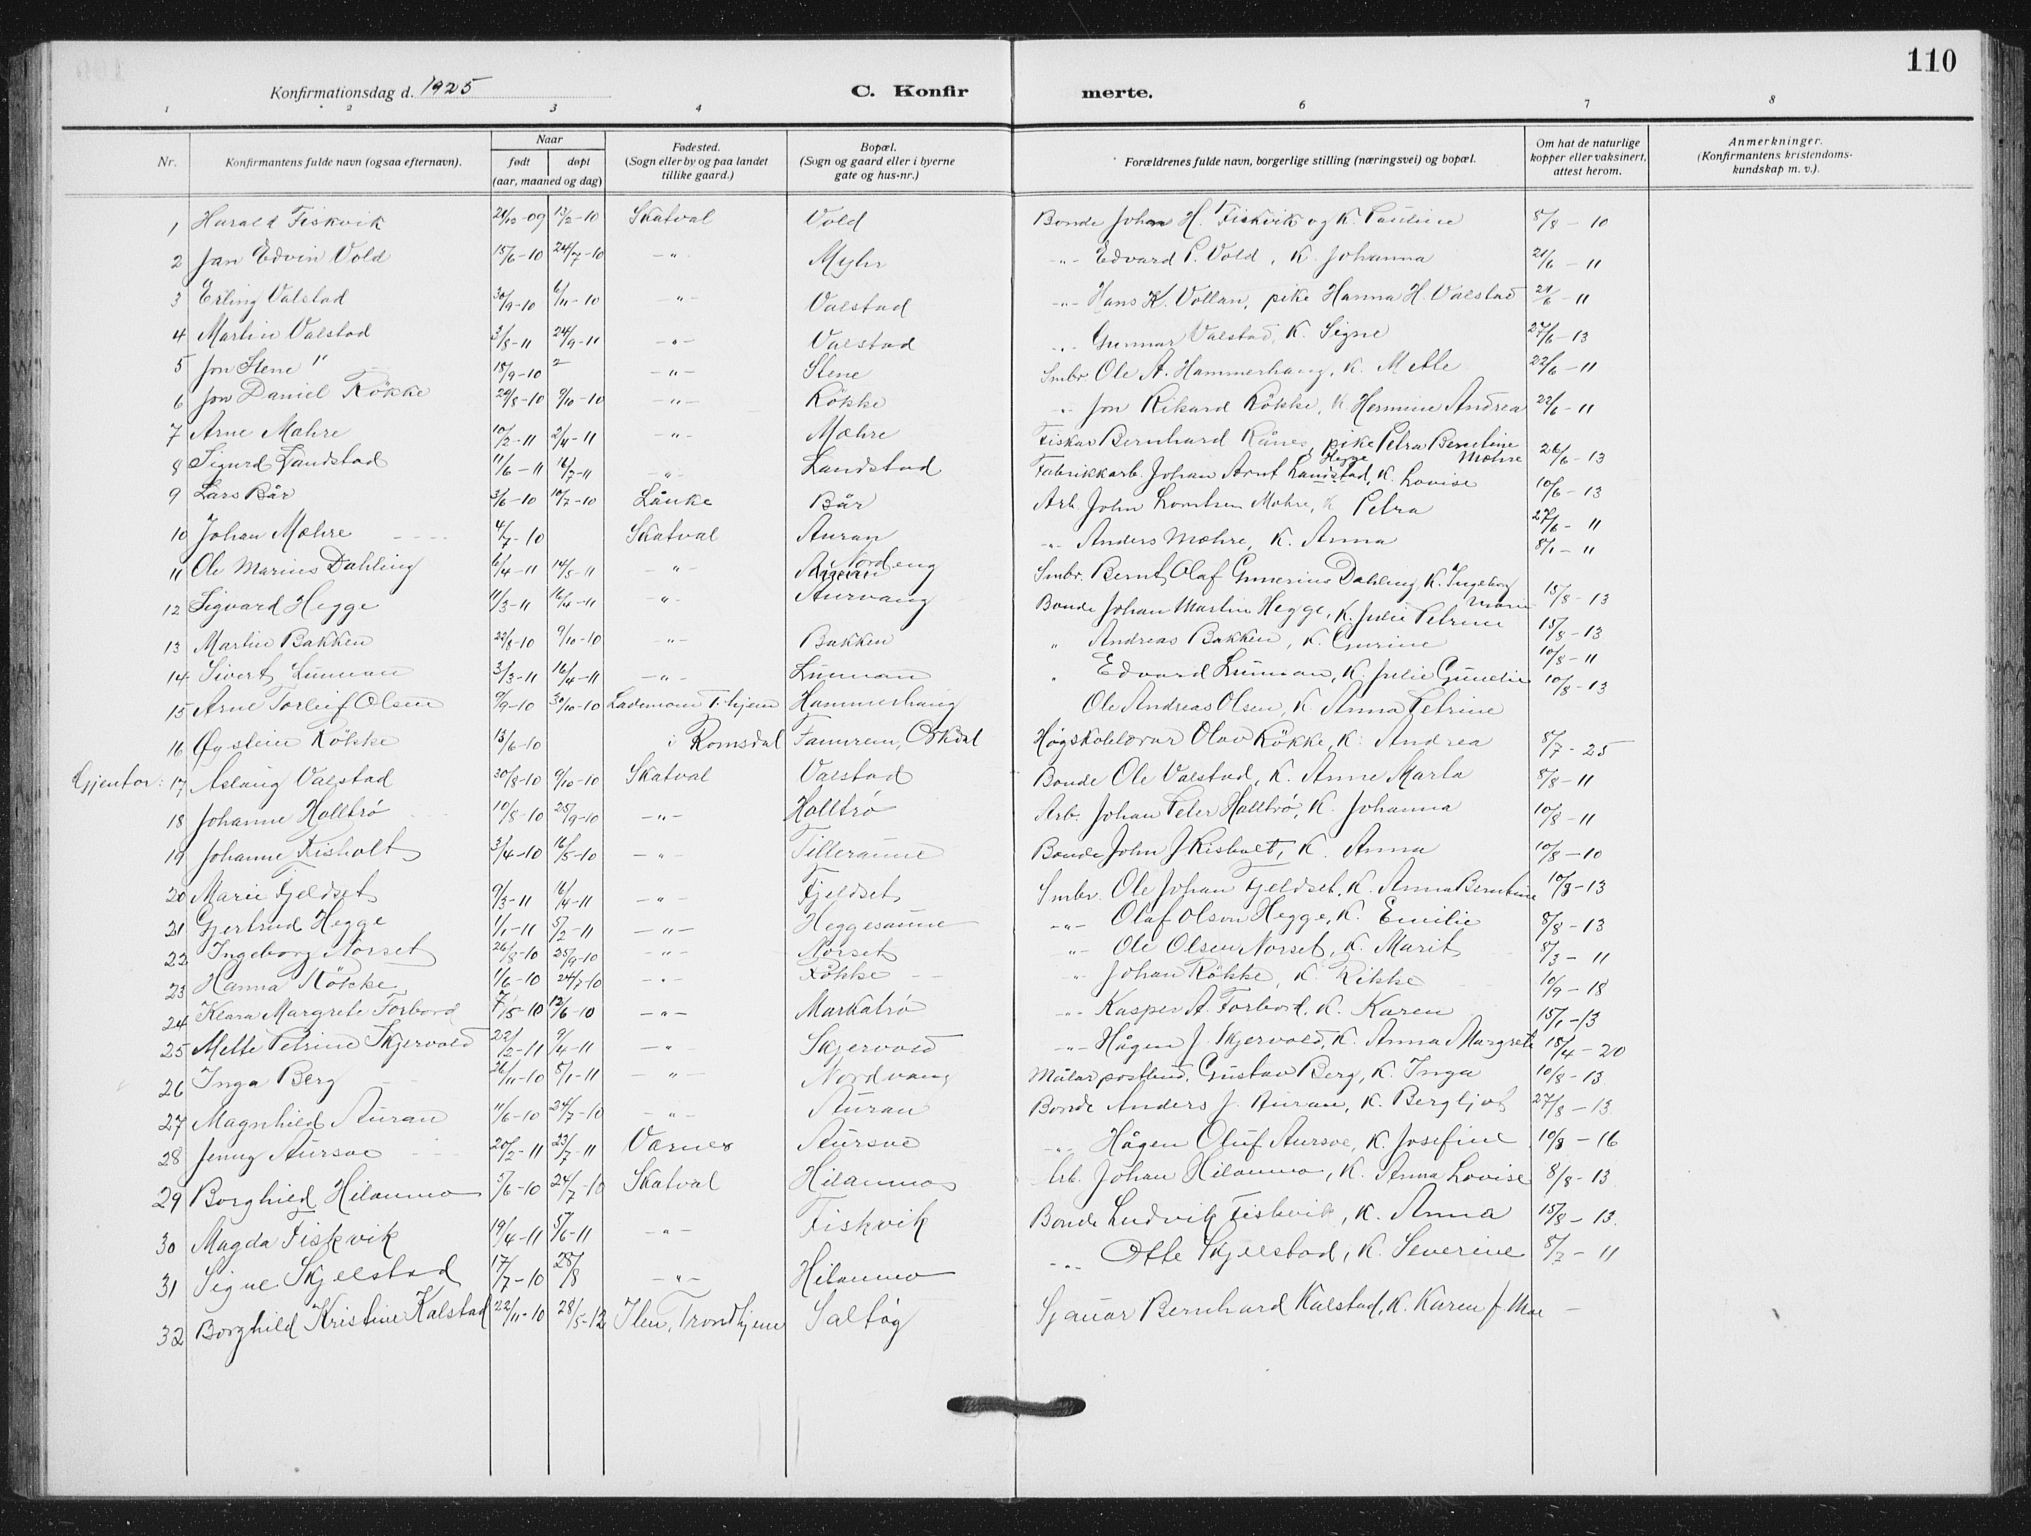 110
Konfirmationsdag d. 1925 C. Konfirmerte.
1 2 3 4 6 7 8
Nr. Konfirmantens fulde navn (ogsaa efternavn). Naar født døpt (aar, maaned og dag) Fødested. (Sogn eller by og paa landet tillike gaard.) Bopæl. (Sogn og gaard eller i byerne gate og hus-nr.) Forældrenes fulde navn, borgerlige stilling (næringsvei) og bopæl. Om hat de naturlige kopper eller vaksinert, attest herom. Anmerkninger. (Konfirmantens kristendomskundskap m. v.).
1 Harald Fiskvik 13/2-10 Skatval Vold Bonde Johan H. Fiskvik og K. Pauline 5/8-10
2 Jan Edvin Vold 15/6-10 24/7-10 -"- Myhr -"- Edvard P. Vold, K. Johanna 21/6-11
3 Erling Valstad 30/9-10 6/11-10 -"- Valstad -"- Hans K. Vollan, pike Hanna H. Valstad 21/6-11
4 Martin Valstad 3/8-11 24/9-11 -"- Valstad -"- Gunnar Valstad, K. Signe 27/6-13
5 Jon Stene " 18/9-10 -"- Stene Smbr. Ole A. Hammerhaug, K. Mette 22/6-11
6 Jon Daniel Røkke 29/8-10 9/10-10 -"- Røkke -"- Jon Rikard Røkke, K Hermine Andrea 22/6-11
7 Arne Mæhre 10/2-11 2/4-11 -"- Mæhre Fisker Bernhard Kånes, pike Petra Berntine Mæhre 26/6-13
8 Sigurd Landstad 11/6-11 16/7-11 -"- Landstad Fabrikkarb. Johan Arnt Landstad, K. Lovise 10/6-13
9 Lars Bår 3/6-10 10/7-10 Lånke Bår Arb. John Lorntsen Mæhre, K Petra 27/6-11
10 Johan Mæhre 4/7-10 Skatval Auran -"- Anders Mæhre, K. Anna 8/1-11
11 Ole Marius Dahling 6/4-11 14/5-11 -"- Nordeng Smbr. Bernt Olaf Gunerius Dahling, K. Ingeborg Marie 15/8-13
12 Sigvard Hegge 11/3-11 16/4-11 -"- Aurvang Bonde Johan Martin Hegge, K. Julie Petrine 15/8-13
13 Martin Bakken 22/8-10 9/10-10 -"- Bakken " Andreas Bakken, K. Gurine 10/8-11
14 Sivert Lunnan 3/3-11 16/4-11 -"- Lunnan " Edvard Lunnan, K. Julie Gunelie 10/8-13
15 Arne Torleif Olsen 9/9-10 30/10-10 Lademoen T.hjem Hammerhaug Ole Andreas Olsen, K Anna Petrine
16 Øystein Røkke 13/6-10 i Romsdal Fannrem, Orkdal Høgskolelærar Olav Røkke, K. Andrea 8/7-25
Gjentor: 17 Aslaug Valstad 30/8-10 9/10-10 Skatval Valstad Bonde Ole Valstad, K. Anne Marta 8/8-11
18 Johanne Holltrø 10/8-10 25/9-10 -"- Holltrø Arb. Johan Peter Holltrø, K. Johanna 10/8-11
19 Johanne Risholt 3/4-10 16/5-10 -"- Tilleraune Bonde John J Risholt, K. Anna 10/8-10
20 Marie Fjeldset 9/3-11 16/4-11 -"- Fjeldset Smbr. Ole Johan Fjeldset, K. Anna Berntine 10/8-13
21 Gjertrud Hegge 1/1-11 5/2-11 -"- Heggesaune -"- Olaf Olson Hegge, K. Emilie 8/8-13
22 Ingeborg Norset 26/8-10 25/9-10 -"- Norset -"- Ole Olsen Norset, K. Marit 8/3-11
23 Hanna Røkke 1/6-10 24/7-10 -"- Røkke -"- Johan Røkke, K. Rikke 10/9-18
24 Klara Margrete Forbord 7/5-10 12/6-10 -"- Markatrø -"- Kasper A. Forbord, K. Karen 15/1-13
25 Mette Petrine Skjervold 22/2-11 9/4-11 -"- Skjervold -"- Hågen J. Skjervold, K. Anna Margrete 15/4-20
26 Inga Berg 26/11-10 5/1-11 -"- Nordvang Målar postbud. Gustav Berg, K. Inga 10/8-13
27 Magnhild Auran 11/6-10 24/7-10 -"- Auran Bonde Anders J. Auran, K. Bergljot 27/8-13
28 Jenny Aursve 20/2-11 23/7-11 Værnes Aursve -"- Hågen Oluf Aursve, K. Josefine 10/8-16
29 Borghild Hilanmo 5/6-10 24/7-10 Skatval Hilanmo Arb. Johan Hilanmo, K. Anna Lovise 8/8-13
30 Magda Fiskvik 19/4-11 5/6-11 -"- Fiskvik Bonde Ludvik Fiskvik, K. Anna 15/8-13
31 Signe Skjelstad 17/7-10 28/8 -"- Hilanmo -"- Otte Skjelstad, K. Severine 8/7-11
32 Borghild Kristine Kalstad 22/11-10 28/5-12 Ilen, Trondhjem Saltøy Sjauar Bernhard Kalstad, K. Karen f. Moe -